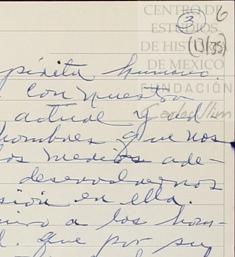 CENTRO DE
ESTUDIOS
DE HISTORIA
DE MEXICO
FUNDACIÓN
3
6
(13/35)
píritu humano.
con nuestra
actual y del
hombres que nos
los medios ade-
desenvolvernos
sión en ella.
a los hom-
que por su